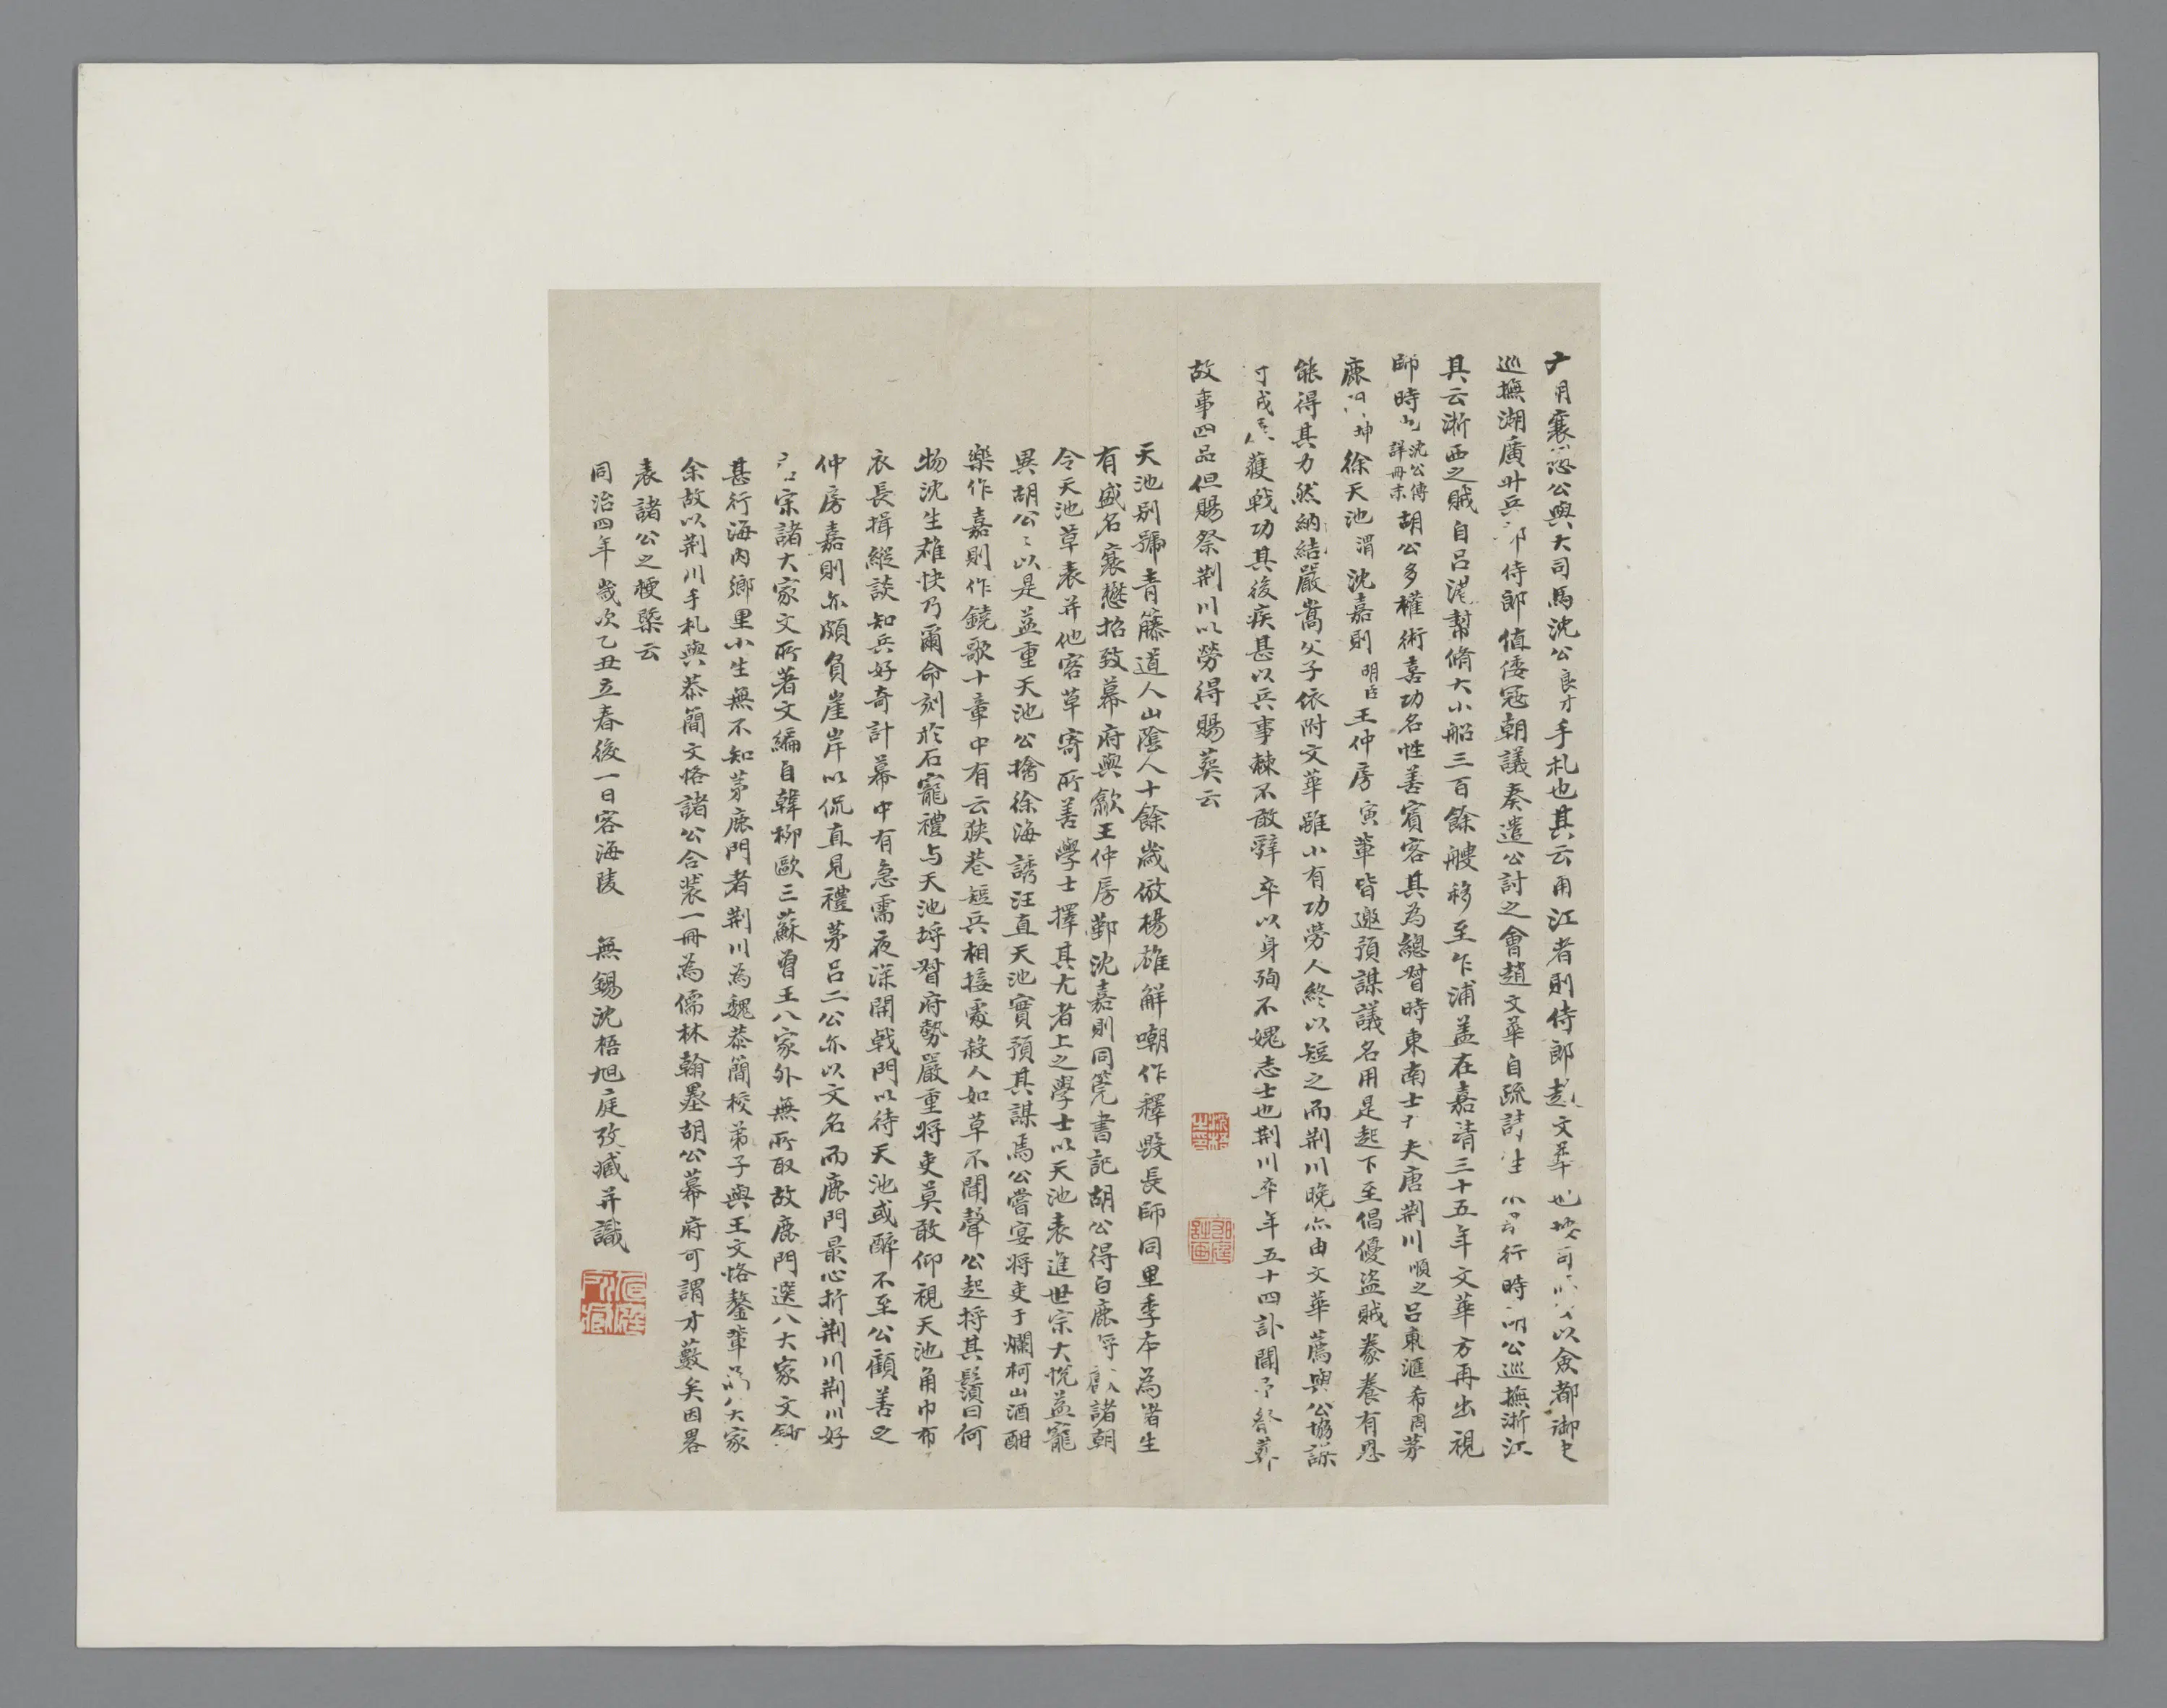 月襄懋公與大司馬沈公良才手札也其云甬江者則侍郎趙文華也按司以僉都御史
巡撫湖廣廾兵侍郎值倭寇朝議奏遣公討之會趙文華自疏請行時公巡撫浙江
其云浙西之賊自呂港幫脩大小船三百餘艘移至乍浦蓋在嘉靖三十五年文華方再出視
師時也沈公傳詳冊末胡公多權術喜功名性善賓客其為總督時東南士夫唐荆川順之呂東滙希周茅
鹿門坤徐天池渭沈嘉則明臣王仲房寅輩皆邀預謀議名用是起下至倡優盜賊豢養有恩
能得其力然納結嚴嵩父子依附文華雖小有功勞人終以短之而荆川晚亦由文華薦與公協謀
討戎獲戰功其後疾甚以兵事棘不敢辭卒以身殉不媿志士也荆川卒年五十四訃聞予祭葬
故事四品但賜祭荆川以勞得賜葬云
天池別號青籐道人山陰人十餘歲倣楊雄解嘲作釋毀長師同里季本為諸生
有盛名襄懋招致幕府與歙王仲房鄞沈嘉則同筦書記胡公得白鹿將獻諸朝
令天池草表并他客草寄所善學士擇其尤者上之學士以天池表進世宗大悅益寵
異胡公〻以是益重天池公擒徐海誘汪直天池實預其謀焉公嘗宴將吏于爛柯山酒酣
樂作嘉則作鐃歌十章中有云狹巷短兵相接處殺人如草不聞聲公起捋其鬚曰何
物沈生雄快乃爾命刻於石寵禮与天池埒督府勢嚴重將吏莫敢仰視天池角巾布
衣長揖縱談知兵好奇計幕中有急需夜深開戟門以待天池或醉不至公顧善之
仲房嘉則亦頗負崖岸以侃直見禮茅呂二公亦以文名而鹿門最心折荆川荆川好
唐宋諸大家文所著文編自韓柳歐三蘇曾王八家外無所取故鹿門選八大家文鈔
甚行海內鄉里小生無不知茅鹿門者荆川為魏恭簡校弟子與王文恪鏊輩大家
余故以荆川手札與恭簡文恪諸公合裝一冊為儒林翰墨胡公幕府可謂才藪矣因畧
表諸公之梗槩云
同治四年歲次乙丑立春後一日客海陵　無錫沈梧旭庭攷臧并識
沈梧之印
旭庭書画
旭庭所臧